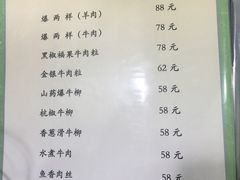 88 元
爆 两 样（羊肉） 78 元
爆 两 样（牛肉） 78 元
黑椒福果牛肉粒 62 元
金银牛肉粒 58 元
山药爆牛柳 58 元
杭椒牛柳 58 元
香葱滑牛柳 58 元
水煮牛肉 58 元
鱼香肉丝